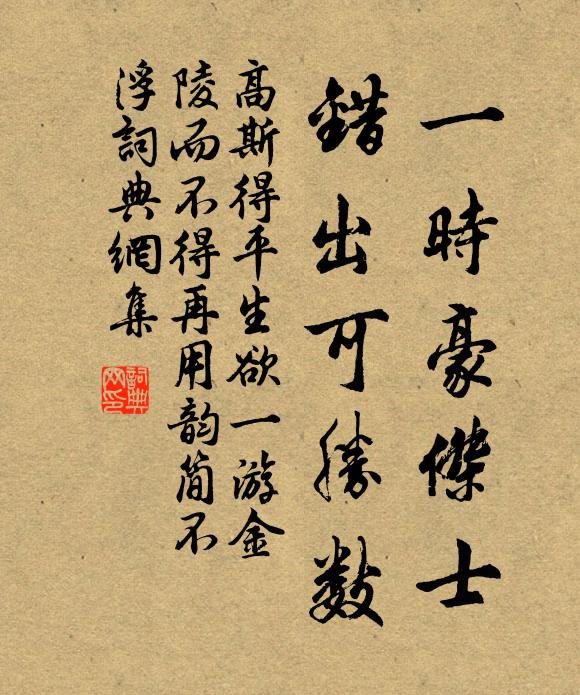 一時豪傑士
錯出可勝數
高斯得平生欲一游金
陵而不得再用韵簡不
浮詞典網集
詞典网印